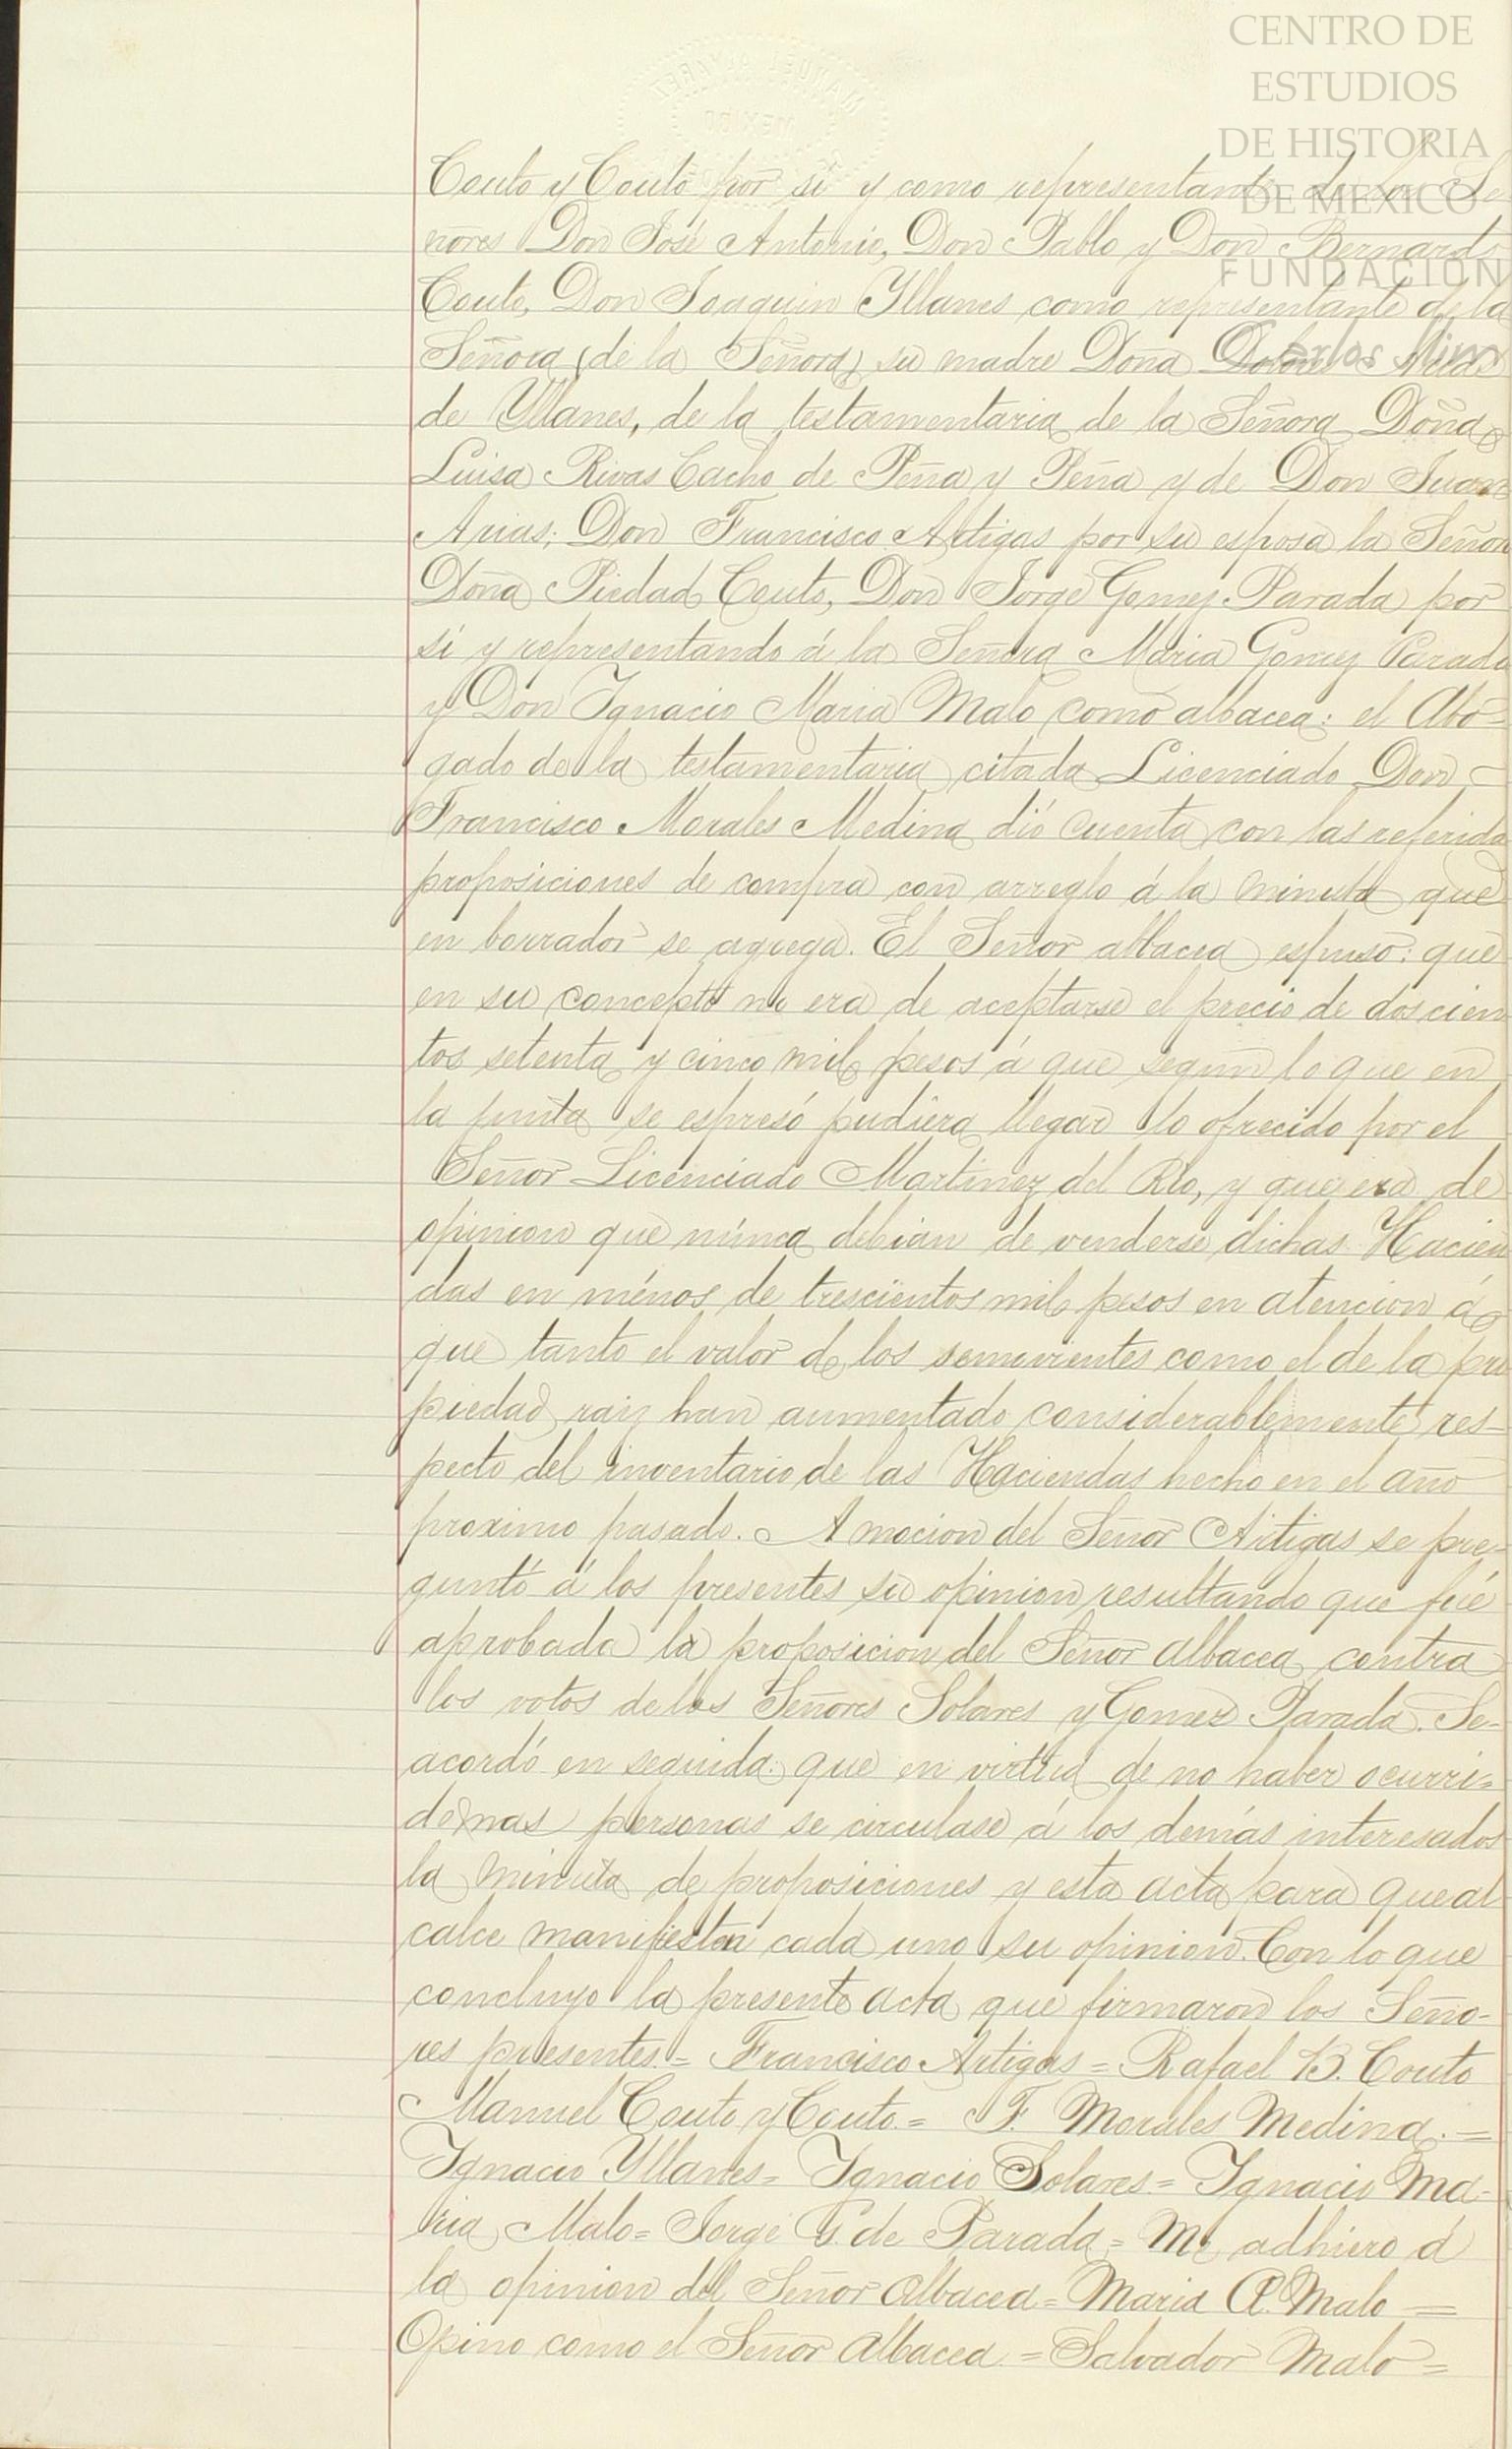 CENTRO DE
ESTUDIOS
DE HISTORIA
DE MEXICO
FUNDACION
MANUEL ALVAREZ
MEXICO
Couto y Couto por si y como representante de los Se
ñores Don José Antonio, Don Pablo y Don Bernardo
Couto, Don Joaquin Yllanes como representante de la
Señora (de la Señora) su madre Doña Dolores
de Yllanes, de la testamentaria de la Señora Doña
Luisa Rivas Cacho de Peña y Peña y de Don Juan
Arias; Don Francisco Artigas por su esposa la Señora
Doña Piedad Couto, Don Jorge Gomez Parada por
si y representando á la Señora Maria Gomez Parada
y Don Ignacio Maria Malo como albacea: el Abo-
gado de la testamentaria citada Licenciado Don
Francisco Morales Medina dió cuenta con las referida
proposiciones de compra con arreglo á la minuta que
en borrador se agrega. El Señor albacea espuso: que
en su concepto no era de aceptarse el precio de doscien
tos setenta y cinco mil pesos á que segun lo que en
la junta se espresó pudiera llegar lo ofrecido por el
Señor Licenciado Martinez del Rio, y que era de
opinion que núnca debian de venderse dichas Hacien
das en ménos de trescientos mil pesos en atencion á
que tanto el valor de los semovientes como el de la pro
piedad raiz han aumentado considerablemente res-
pecto del inventario de las Haciendas hecho en el año
proximo pasado. A mocion del Señor Artigas se pre-
guntó á los presentes su opinion resultando que fué
aprobada la proposicion del Señor albacea contra
los votos de los Señores Solares y Gomez Parada. Se
acordó en seguida: que en virtud de no haber ocurri=
do mas personas se circulase á los demás interesados
la minuta de proposiciones y esta acta para que al
calce manifiesten cada uno su opinion. Con lo que
concluyo la presente acta que firmaron los Seño-
res presentes = Francisco Artigas = Rafael B. Couto
Manuel Couto y Couto = F. Morales Medina. =
Ignacio Yllanes = Ignacio Solares = Ignacio Ma-
ria Malo = Jorge G. de Parada = Me adhiero á
la opinion del Señor Albacea = Maria A. Malo =
Opino como el Señor Albacea = Salvador Malo =